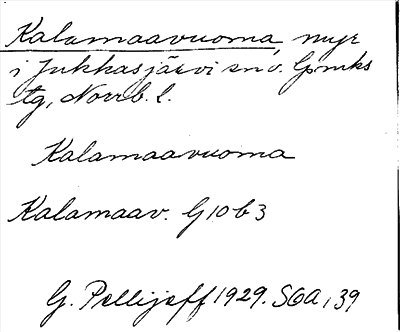 Kalamaavuoma, myr
i Jukkasjärvi sn o. Gpmks
tg, Norrb. l.
Kalamaavuoma
Kalamaav. G 10 b 3
G. Pellijeff 1929. SOA, 39